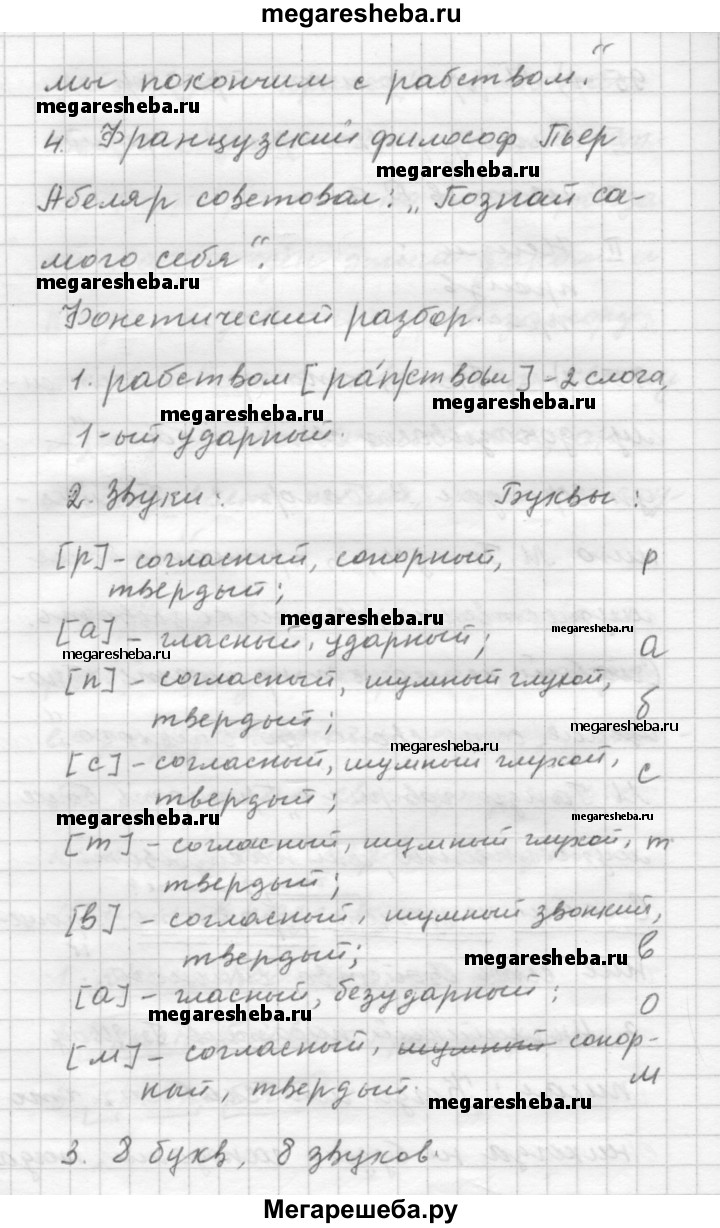 megaresheba.ru
мы покончим с рабством.“
megaresheba.ru
4. Французский философ Пьер
megaresheba.ru
Абеляр советовал: „Познай са-
мого себя“.
megaresheba.ru
Фонетический разбор.
1. рабством [ра́п|ством] - 2 слога,
megaresheba.ru megaresheba.ru
1-ый ударный.
2. Звуки: Буквы:
[р] - согласный, сонорный, р
твердый;
megaresheba.ru megaresheba.ru
[а] - гласный, ударный; а
megaresheba.ru
[п] - согласный, шумный глухой, б
твердый; megaresheba.ru
megaresheba.ru
[с] - согласный, шумный глухой, с
твердый;
megaresheba.ru
[т] - согласный, шумный глухой, т
твердый;
[в] - согласный, шумный звонкий,
твердый; megaresheba.ru в
[а] - гласный, безударный; о
megaresheba.ru
[м] - согласный, шумный сонор-
ный, твердый. м
megaresheba.ru
3. 8 букв, 8 звуков
Мегарешеба.ру